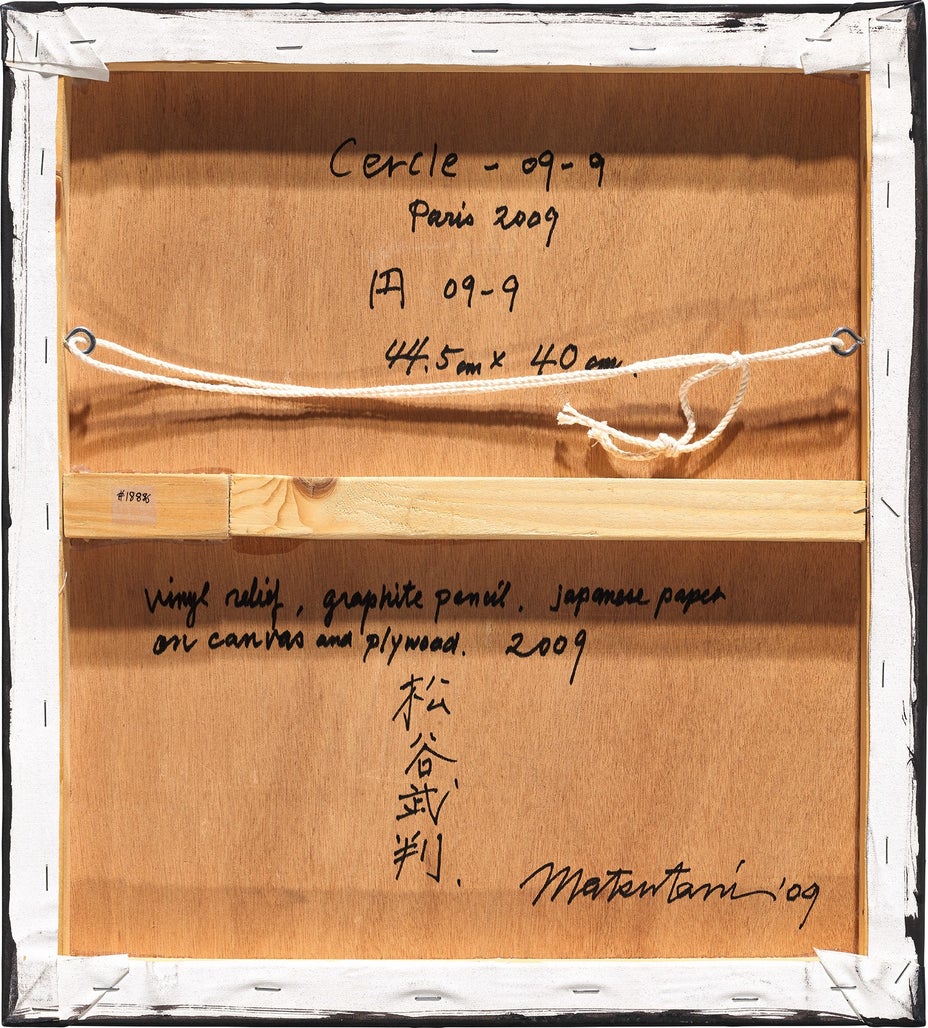 Cercle - 09-9
Paris 2009
円 09-9
44.5cm x 40cm.
#18886
vinyl relief, graphite pencil. japanese paper
on canvas and plywood. 2009
松谷武判.
Matsutani '09